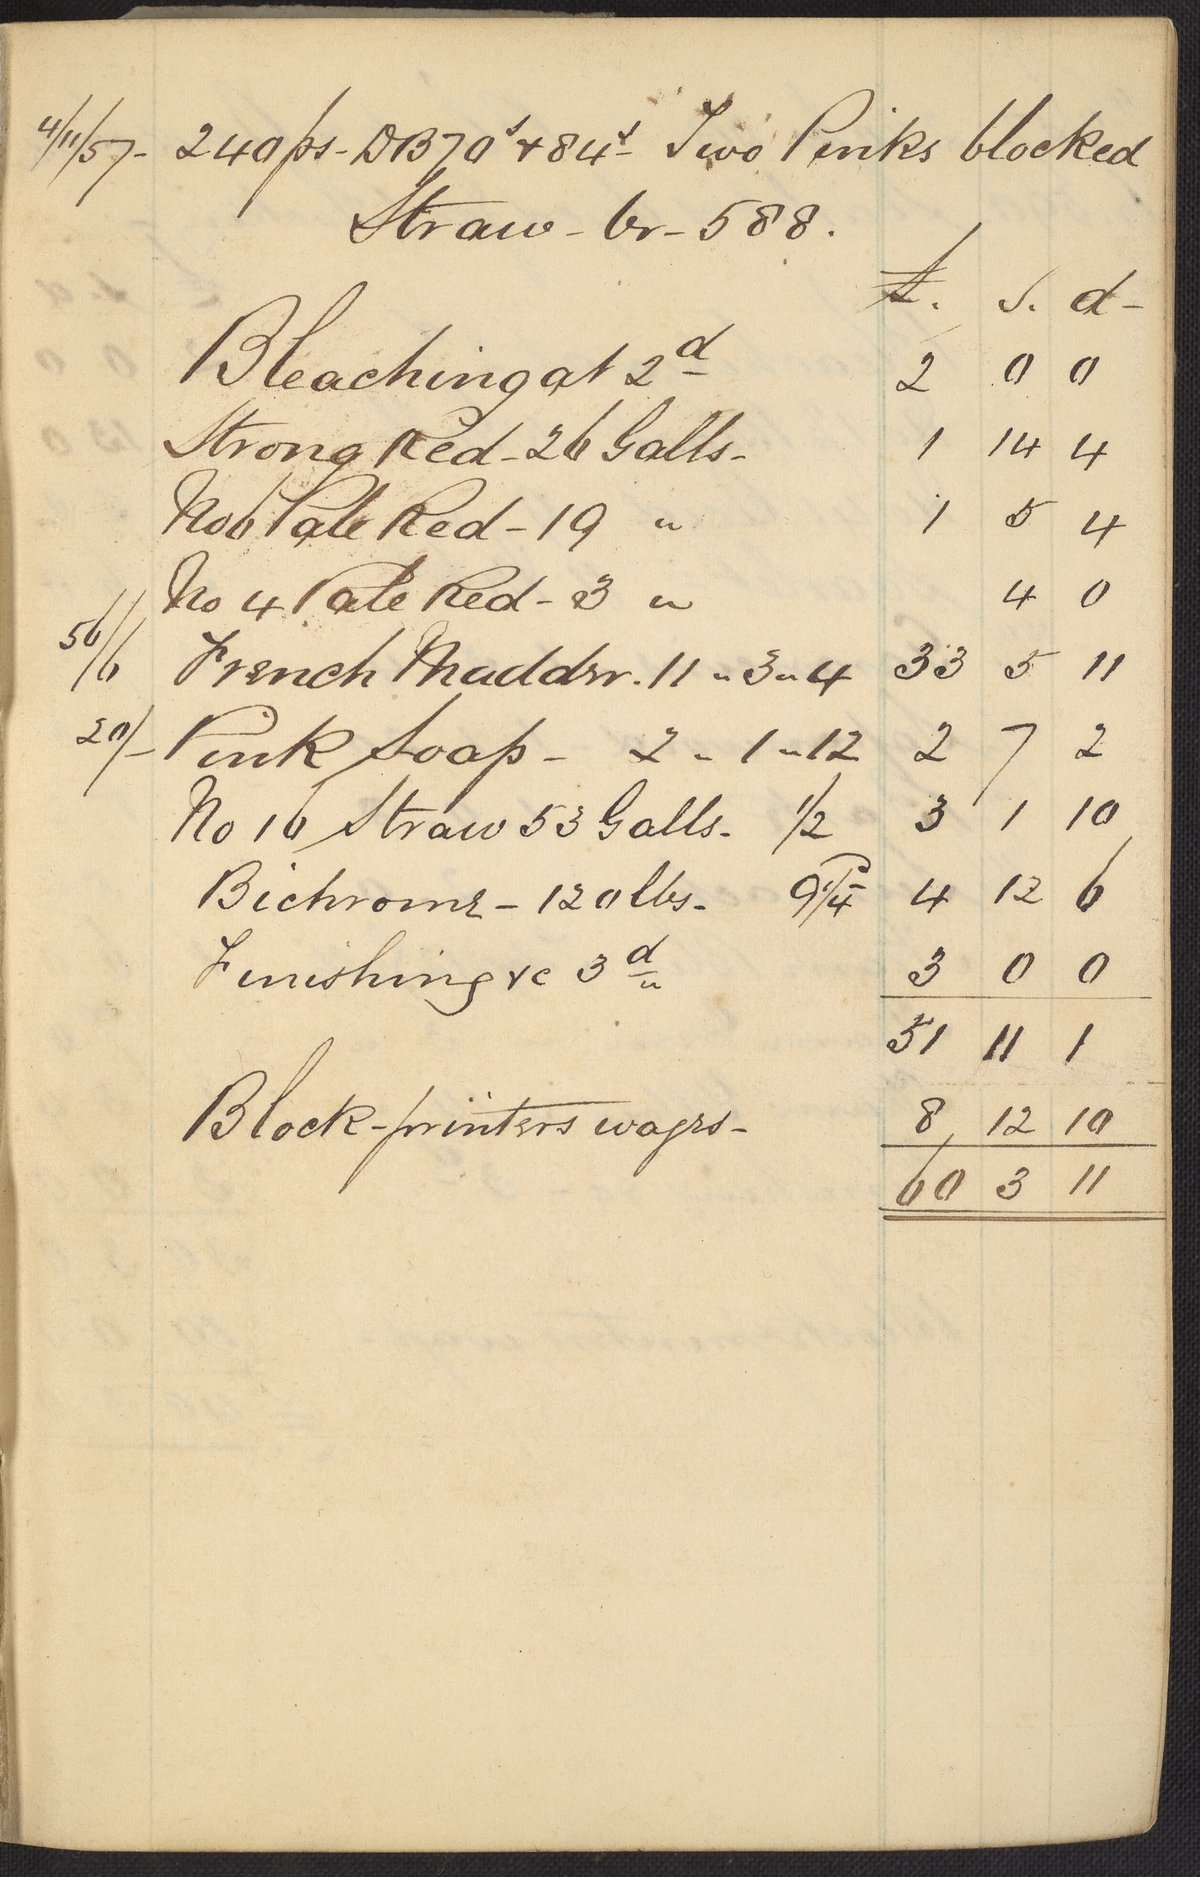 4/11/57 - 240 ps - DB 70s & 84s - Two Pinks blocked
Straw - br - 588.
£. s. d -
Bleaching at 2d 2 0 0
Strong Red - 26 Galls - 1 14 4
No 6 Pale Red - 19 " 1 5 4
No 4 Pale Red - 3 " 4 0
56/6 French Madder . 11 " 3 " 4 33 5 11
20/- Pink Soap - 2 " 1 " 12 2 7 2
No 16 Straw 53 Galls - 1/2 3 1 10
Bichrome - 120 lbs - 9 1/4 4 12 6
Finishing &c 3d " 3 0 0
51 11 1
Block-printers wages - 8 12 10
60 3 11